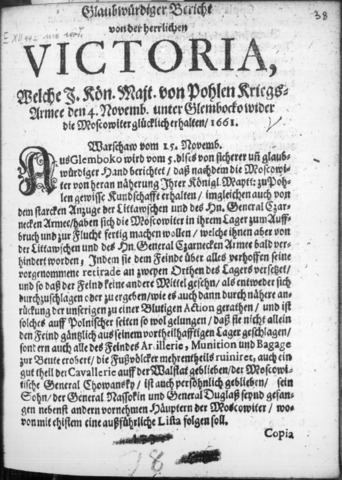 38
Glaubwürdiger Bericht
von der herrlichen
VICTORIA,
Welche J. Kön. Majt. von Pohlen Kriegs-
Armee den 4. Novemb. unter Glemboko wider
die Moscowiter glücklich erhalten / 1661.
Warschaw vom 15. Novemb.
Aus Glemboko wird vom 5. dises von sicherer uñ glaub-
würdiger Hand berichtet / daß nachdem die Moscowi-
ter von heran näherung Jhrer Königl. Maytt: zu Poh-
len gewisse Kundschafft erhalten / imgleichen auch von
dem starcken Anzuge der Littawschen und des Hn. General Czar-
necken Armee / haben sich die Moscowiter in ihrem Lager zum Auff-
bruch und zur Flucht fertig machen wollen / welche ihnen aber von
der Littawschen und des Hn. General Czarnecken Armee bald ver-
hindert worden / Jndem sie dem Feinde über alles verhoffen seine
vorgenommene retirade an zweyen Orthen des Lagers versetzet /
und so daß der Feind keine andere Mittel gesehn / als entweder sich
durchzuschlagen oder zu ergeben / wie es auch dann durch nähere an-
rückung der unserigen zu einer Blutigen Action gerathen / und ist
solches auff Polnischer seiten so wol gelungen / daß sie nicht allein
den Feind gäntzlich aus seinem vortheilhafftigen Lager geschlagen /
sondern auch alle des Feindes Artillerie, Munition und Bagage
zur Beute erobert / die Fußvölcker mehrentheils ruiniret, auch ein
gut theil der Cavallerie auff der Walstat geblieben / der Moscowi-
tische General Chowansky / ist auch persöhnlich geblieben / sein
Sohn / der General Nassokin und General Duglaß seynd gefan-
gen nebenst andern vornehmen Häuptern der Moscowiter / wo-
von mit ehistem eine außführliche Lista folgen soll.
Copia